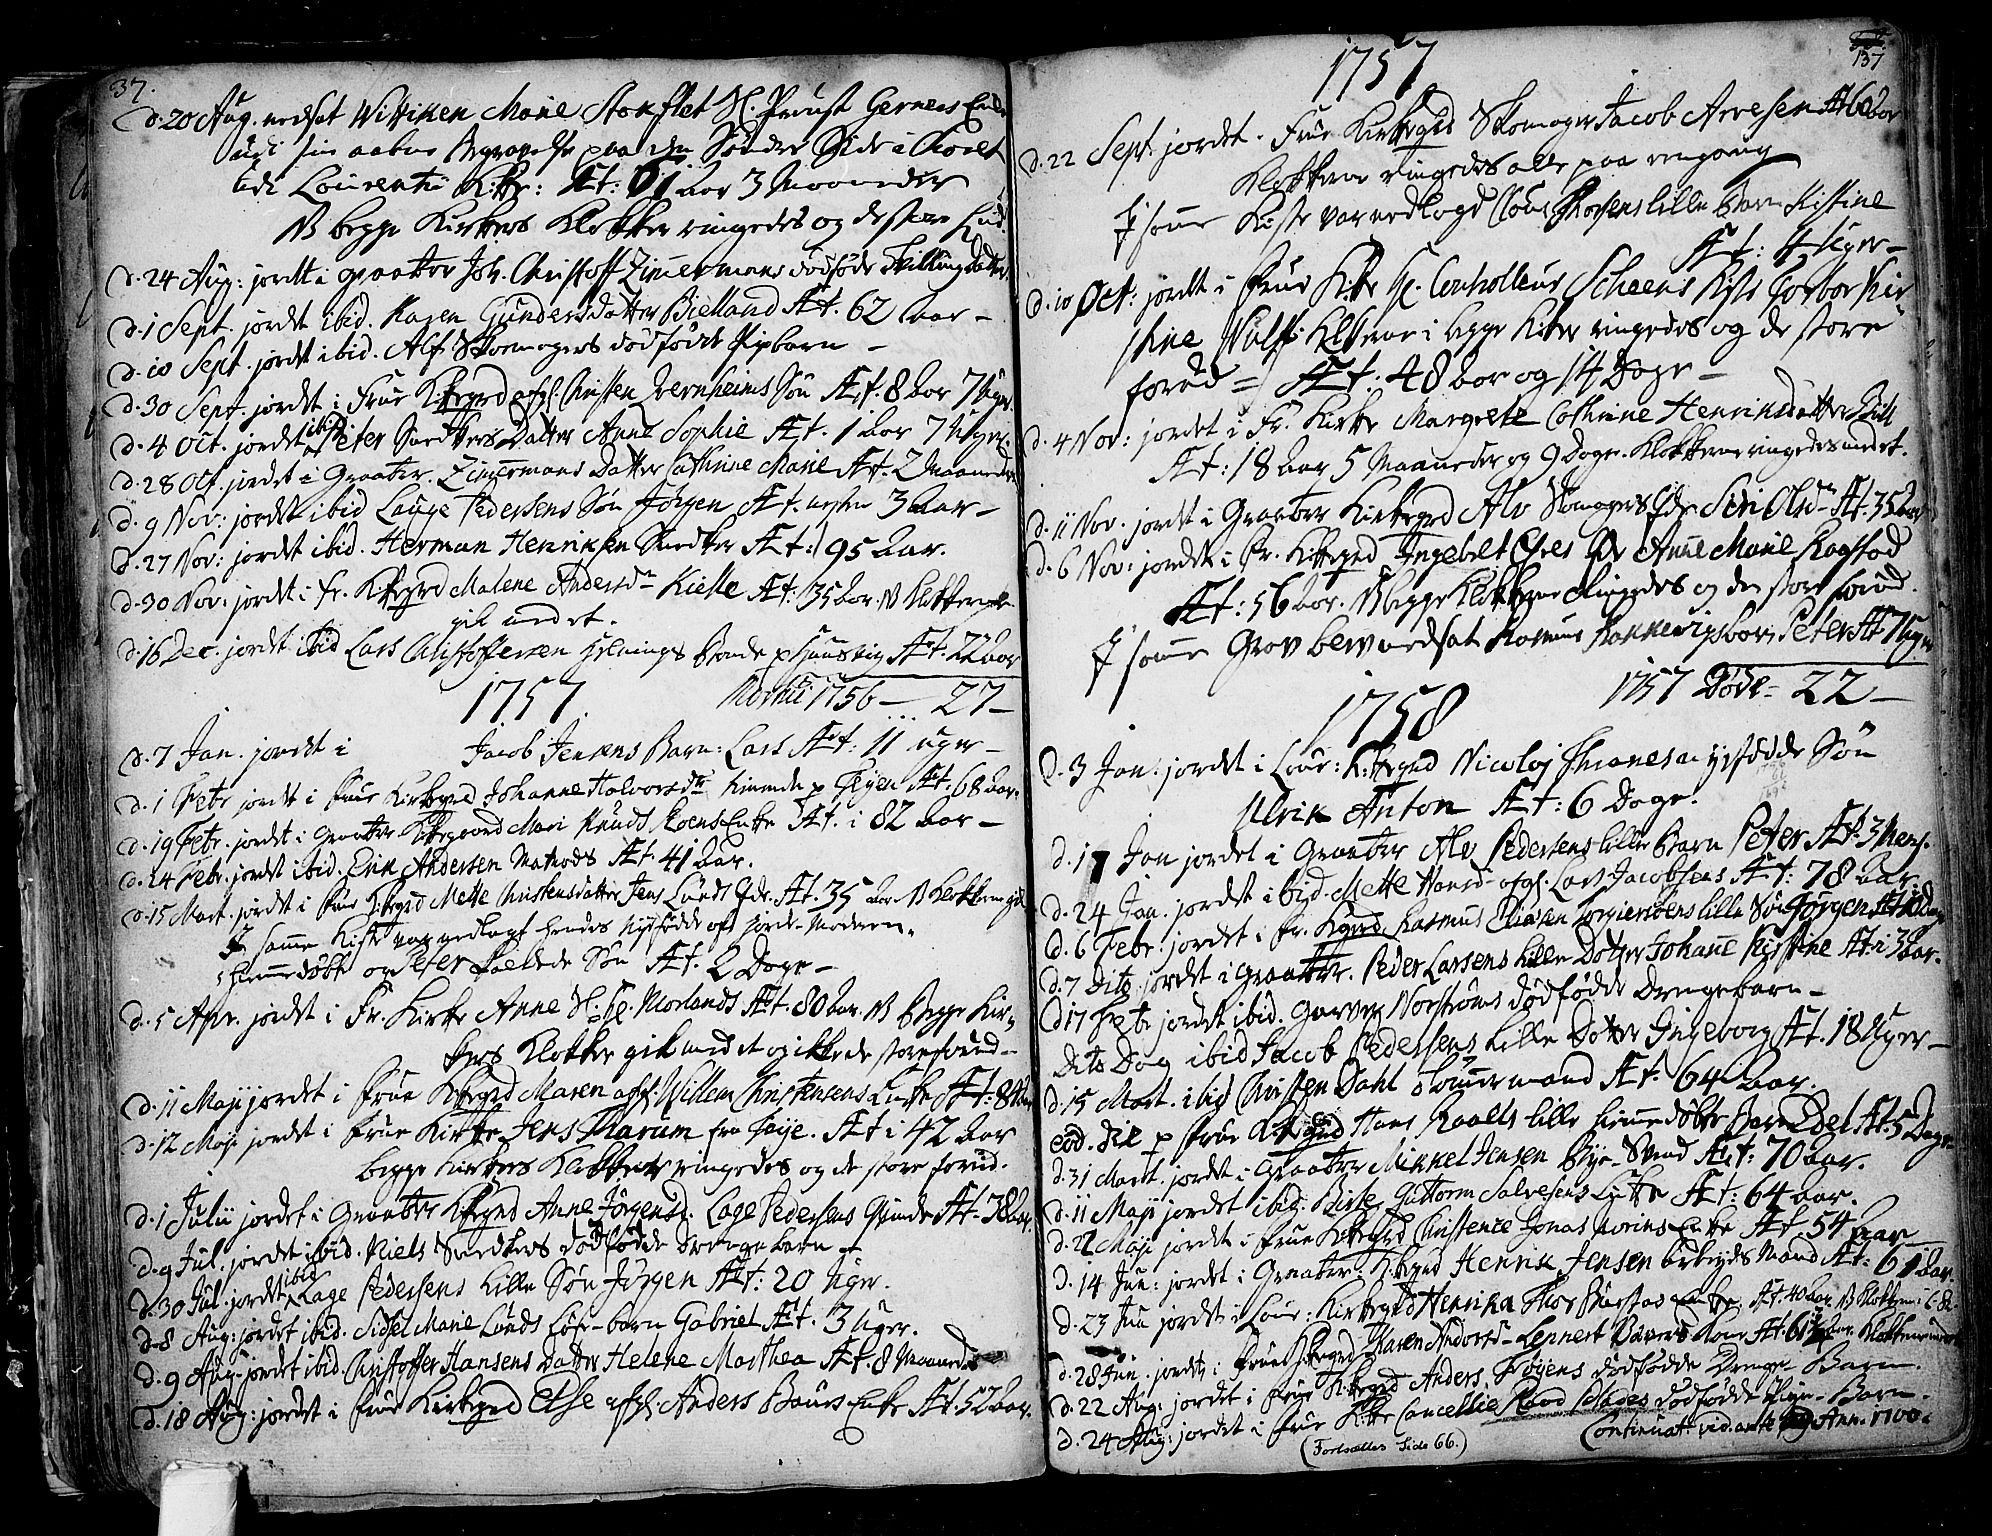 37.
d. 20 Aug. nedsat Wittiken Marie Stokflet Sl. Prøust Gerners Enke
udi sin aabne Begravelse paa den Søndre Side i Choret
udi Laurentii Kirke: Æt: 61 aar 3 Maaneder
NB begge Kirkers Klokker ringedes og de store
d. 24 Aug: jordet i Graater Joh. Christoff Zimermans dødføde Tvilling Datter
d. 1 Sept. jordet ibid. Karen Gundersdatter Bielland Æt. 62 aar –
d. 10 Sept. jordet ibid. Alf Skomagers dødfødde Pigebarn –
d. 30 Sept. jordet i Frue Kirkegrd afgl. Christen Jernheims Søn Æt. 8 aar 7 Uger.
d. 4 Oct. jordet ibid. Peter Snedkers Datter Anne Sophie Æt. 1 aar 7 Uger.
d. 28 Oct. jordet i Graater. Zimermans Datter Cathrine Marie Æt. 2 Maaneder
d. 9 Nov: jordet ibid Lauge Pedersens Søn Jørgen Æt. nesten 3 aar –
d. 27 Nov: jordet ibid. Herman Henriksen Snedker Æt: 95 aar.
d. 30 Nov: jordet i Fr. Kirkegrd Malene Andersdr Kielle Æt: 35 aar. NB Klokkerne
gik med et.
d. 16 Dec. jordet ibid Lars Christoffersen Bonde p Æt. 22 aar
1757 Mortui 1756 — 27 –
d. 7 Jan. jordet i Jacob Jensens Barn: Lars Æt: 11 uger –
d. 1 Febr jordet i Frue Kirkegrd Johanne Halvorsdr p Æt. 68 aar.
d. 19 Febr. jordet i Graater Kirkegaard Mari Knuds Enke Æt. i 82 aar –
d. 24 Febr. jordet ibid. Erik Andersen Matros Æt. 41 aar.
d. 15 Mart. jordet i Frue Kirkegrd Mette Christensdatter Jens Lunds Qde. Æt. 35 aar NB Klokkerne gik
I samme Kiste var nedlagt hendes nyfødde Moderen
hiemmedøbte og Peter kaldede Søn Æt. 2 Dage –
d. 5 Apr. jordet i Fr. Kirke Anne Sl. Morlands Æt. 80 aar. NB begge Kir-
kers Klokker gik med et og ikke de store forud –
d. 11 Maji jordet i Frue Kirkegrd Maren afgl. Willem Christensens Enke Æt: 84 aar
d. 12 Maji jordet i Frue Kirke Jens Tharum fra Æt i 42 aar
begge Kirkers Klokker ringedes og de store forud.
d. 1 Julii jordet i Graater Kirkegrd Anne Jørgensd. Lage Pedersens Qvinde Æt. 38 aar.
d. 9 Jul. jordet ibid. Niels Snedkers dødfødde drenge barn –
d. 30 Jul. jordet ibid Lage Pedersens lille Søn Jørgen Æt: 20 Uger.
d. 8 Aug: jordet ibid. Sidsel Marie Lunds Løse-barn Gabriel Æt. 3 uger.
d. 9 Aug: jordet ibid Christoffer Hansens datter Helene Marthea Æt. 8 Maaneder
d. 18 Aug: jordet i Frue Kirkegrd Else afgl. Anders Enke Æt. 52 aar.
137
1757
d. 22 Sept: jordet i Frue Kirkegrd Skomager Jacob Arvesen Æt. aar
Klokkerne ringedes alle paa eengang
I samme Kiste var nedlagd lille Barn Kistine
Æt: 4 Uger –
d. 10 Oct: jordet i Frue Kirke Sl. Controlleur Scheens Kir-
stine Wulff: Klokkerne i begge Kirker ringedes og de store
forud = Æt: 48 aar og 14 Dage –
d. 4 Nov: jordet i Fr. Kirke Margrete Cathrine Henriksdatter
Æt: 18 aar 5 Maaneder og 9 Dage. Klokkerne ringedes med et.
d. 11 Nov. jordet i Graater Kirkegrd Alv Skomagers Qde Siri Olsdr Æt. 35 aar
d. 6 Nov: jordet i Fr. Kirkegrd Ingebelt Anne Marie Raastad
Æt: 56 aar. NB begge Klokkerne ringedes og den store forud.
I samme Grav blev nedsat Rasmus barn Peter Æt 7 Uger
1757 Døde = 22 –
1758
d. 3 Jan: jordet i Laur: Kirkegrd Nicolaj Thranes nyfødde Søn
Ulrik Anton Æt: 6 Dage.
d. 17 Jan jordet i Graater Alv Pedersens lille Barn Peter Æt: 3
d. 24 Jan. jordet ibid. Mette Hansd- afgl. Lars Jacobsens Æt: 78 aar
d. 6 Febr. jordet i Fr. Kgrd. Rasmus Eliasen lille Søn Jørgen Æt
d. 7 Dito jordet i Graater. Peder Larsens lille Dotter Johane Kistine Æt. i 3 aar.
d. 17 Febr jordet ibid. Garver Norstrøms dødfødde Drengebarn –
Dito Dag ibid Jacob Pedersens lille Dotter Ingeborg Æt. 18 Uger –
d. 15 Mart. ibid Christen Dahl Tømmermand Æt. 64 aar.
eod. die p Frue Kirkegrd Hans Raalls lille hiemmedøbte Barn Edel Æt. 5 Dage
d. 31 Mart. jordet i Graater Mikkel Jensen Bye-Svend Æt: 70 aar.
d. 11 Maji jordet ibid. Birte Guttorm Salvesens Enke Æt: 64 aar.
d. 22 Maji jordet i Frue Kirkegrd Christence Jonas Enke Æt 54 aar
d. 14 Jun: jordet i Graater. Kirkegrd Henrik Jensen Arbeyds Mand Æt: 61 aar.
d. 23 Jun jordet i Laur: Kirkegrd Henrika Thor Enke, Æt. 40 aar. NB Klokken
d. 28 Jun. jordet i Frue Kirkegrd Karen Andersdr Lennert Bøvers Kone Æt. 61 aar. Klokkerne
d. 22 Aug: jordet i Frue Kirkegrd Anders. Drejens dødfødde Drenge Barn.
d. 24 Aug: jordet i Frue Kirke Cancellie Raad dødfødde Pige-Barn.
(Fortsættes Side 66.) Continuat: vid. ante Ann. 1700.